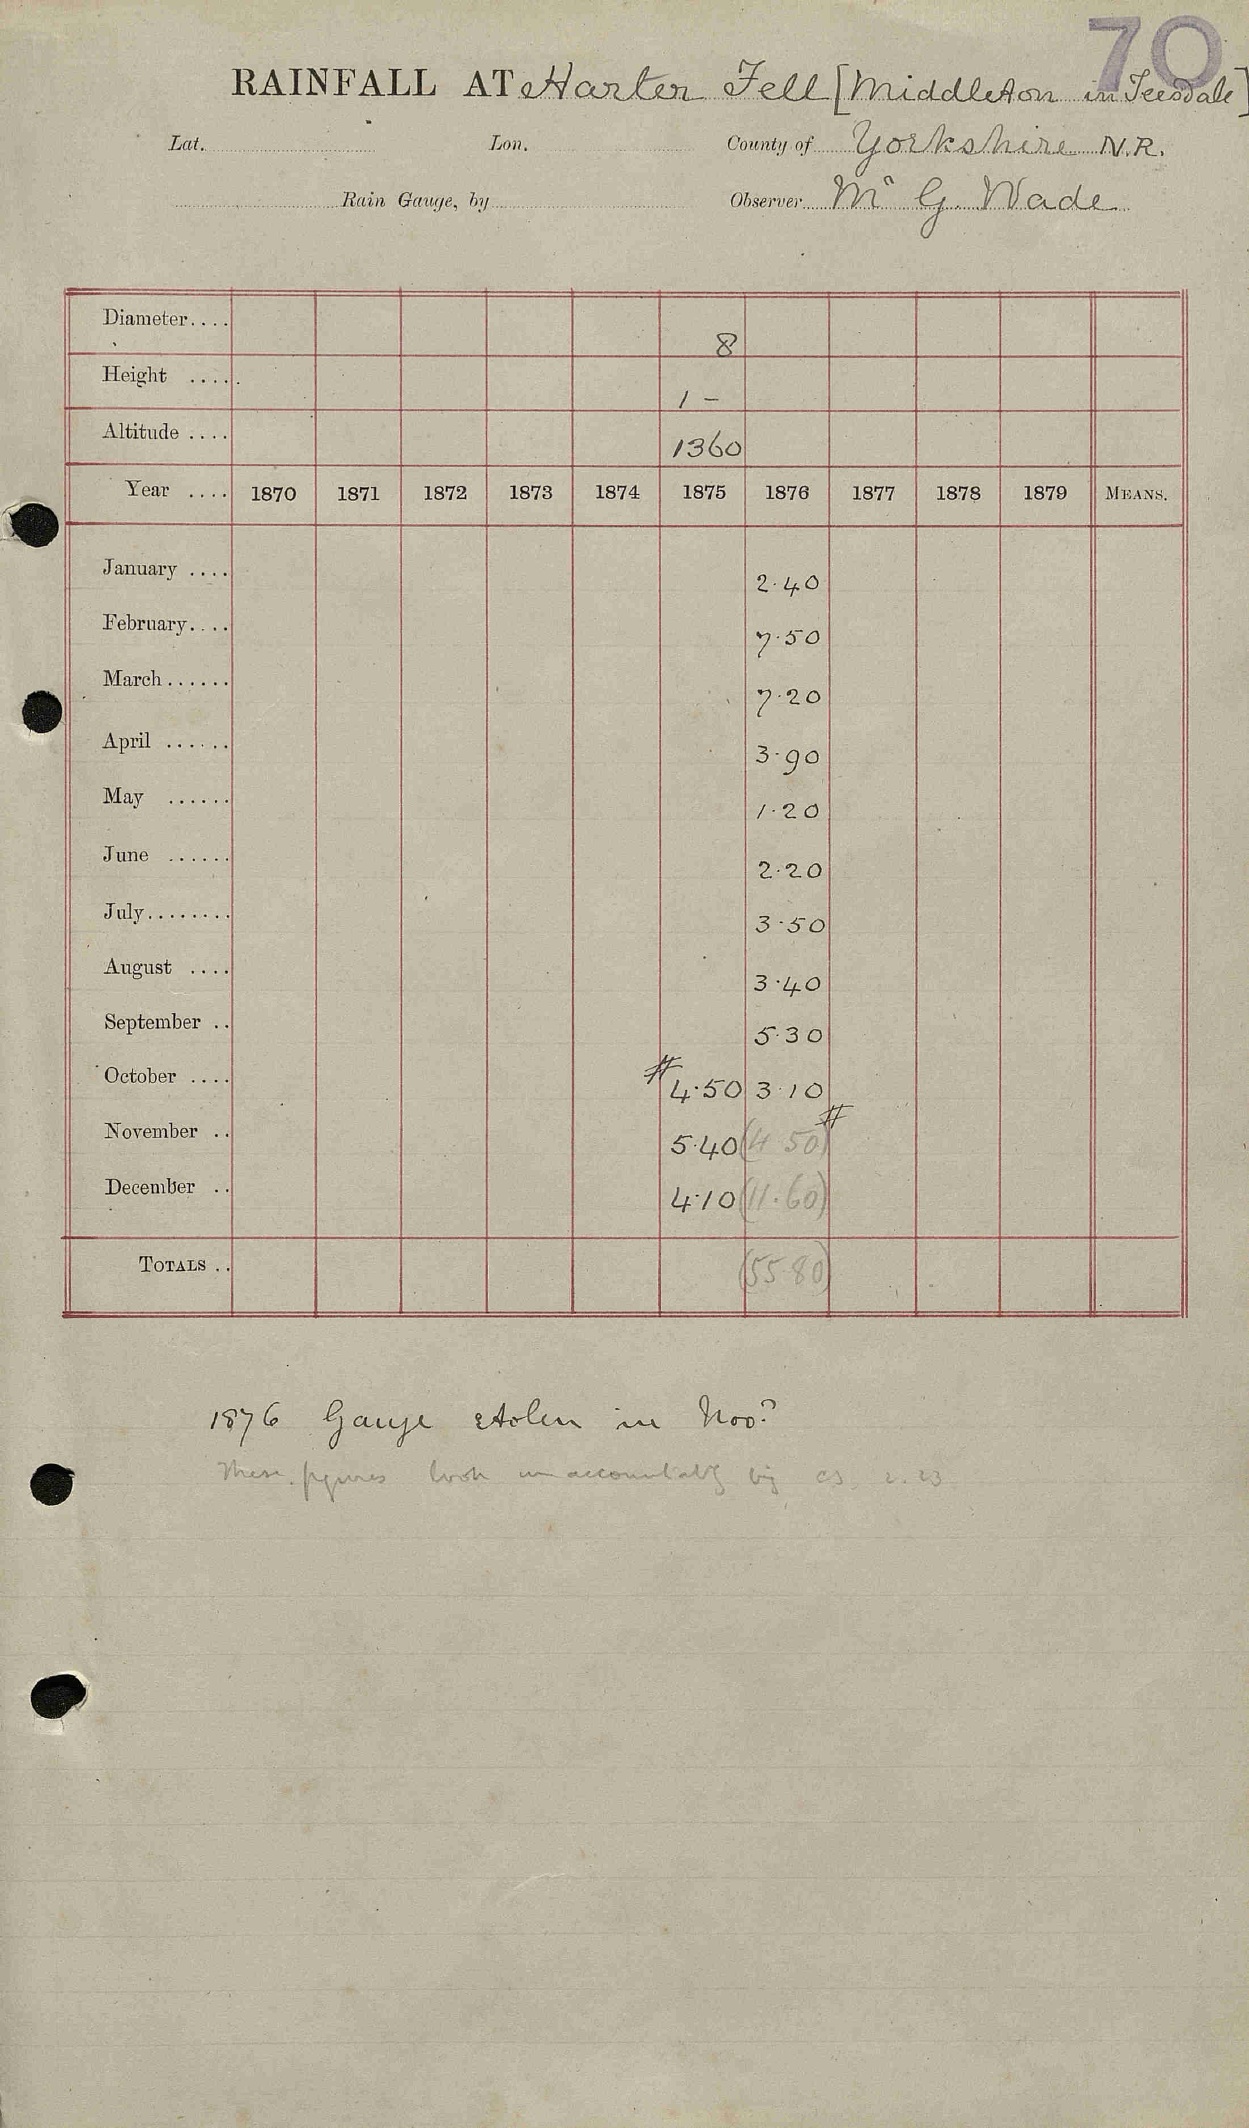 70
RAINFALL AT Harter Fell [Middleton in Teesdale]
Lat. Lon. County of Yorkshire N.R.
Rain Gauge, by Observer Mr G. Wade
Diameter.... 8
Height .... 1 –
Altitude .... 1360
Year .... 1870 1871 1872 1873 1874 1875 1876 1877 1878 1879 MEANS.
January .... 2.40
February.... 7.50
March...... 7.20
April ...... 3.90
May ...... 1.20
June ...... 2.20
July........ 3.50
August .... 3.40
September .. 5.30
October .... # 4.50 3.10
November .. 5.40 (4 50) #
December .. 4.10 (11.60)
TOTALS .. (55 80)
1876 Gauge stolen in Nov?
These figures look unaccountably big 2.23